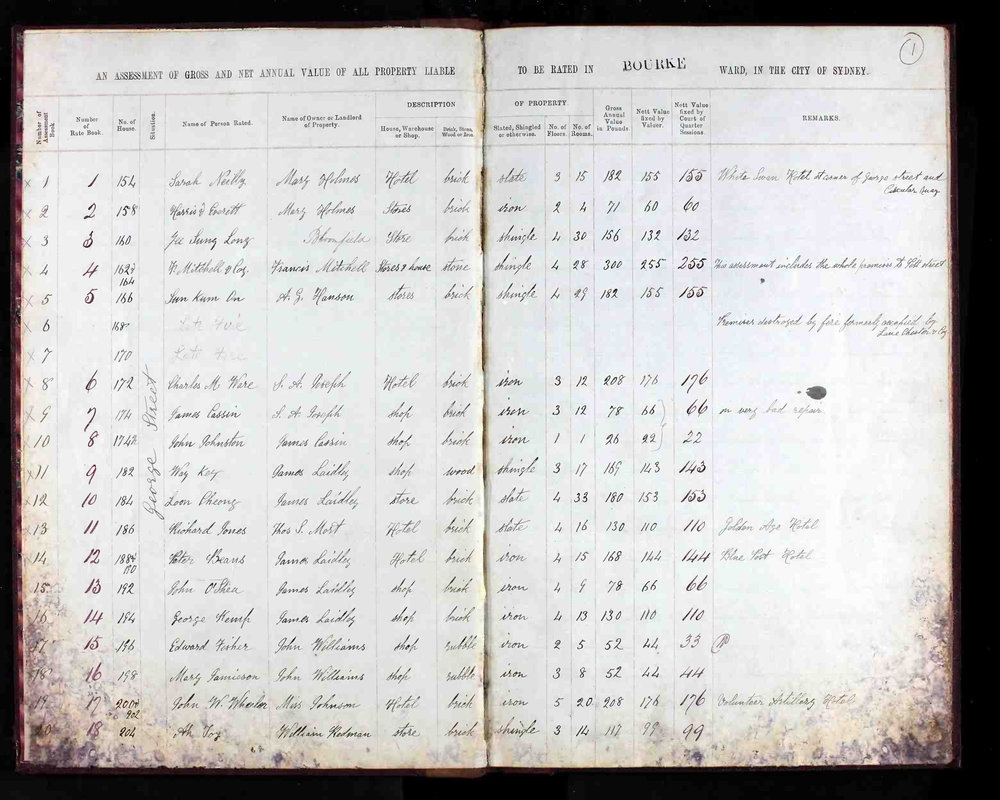 1
AN ASSESSMENT OF GROSS AND NET ANNUAL VALUE OF ALL PROPERTY LIABLE TO BE RATED IN BOURKE WARD, IN THE CITY OF SYDNEY.
DESCRIPTION OF PROPERTY
Number of Assessment Book Number of Rate Book. No. of House. Situation. Name of Person Rated. Name of Owner or Landlord of Property. House, Warehouse or Shop. Brick, Stone, Wood or Iron. Slated, Shingled or otherwise. No. of Floors. No. of Rooms. Gross Annual Value in Pounds. Nett Value fixed by Valuer. Nett Value fixed by Court of Quarter Sessions. REMARKS.
George Street
x 1 1 154 Sarah Neilly Mary Holmes Hotel brick slate 3 15 182 155 155 White Swan Hotel at corner of George street and
Circular Quay
x 2 2 158 Harris & Everett Mary Holmes Stores brick iron 2 4 71 60 60
x 3 3 160 Gee Sung Long Bloomfield Store brick shingle 4 30 156 132 132
x 4 4 162 & F. Mitchell & Coy. Francis Mitchell Stores & house stone shingle 4 28 300 255 255 This assessment includes the whole premises to Pitt street
164
x 5 5 166 Sun Kum On A. G. Hanson stores brick shingle 4 29 182 155 155
x 6 168 Late Fire Premises destroyed by fire formerly occupied by
Lane Chester & Coy
x 7 170 Late Fire
x 8 6 172 Charles M. Ware S. A. Joseph Hotel brick iron 3 12 208 176 176
x 9 7 174 James Cassin S. A. Joseph shop brick iron 3 12 78 66 66 in very bad repair
x 10 8 174½ John Johnston James Cassin shop brick iron 1 1 26 22 22
x 11 9 182 Way Key James Laidley shop wood shingle 3 17 169 143 143
x 12 10 184 Loon Cheong James Laidley store brick slate 4 33 180 153 153
x 13 11 186 Richard Jones Thos S. Mort Hotel brick slate 4 16 130 110 110 Golden Age Hotel
x 14 12 188 & Peter Beans James Laidley Hotel brick iron 4 15 168 144 144 Blue Post Hotel
190
15 13 192 John O'Shea James Laidley shop brick iron 4 9 78 66 66
16 14 194 George Kemp James Laidley shop brick iron 4 13 130 110 110
17 15 196 Edward Fisher John Williams shop rubble iron 2 5 52 44 33
18 16 198 Mary Jamieson John Williams shop rubble iron 3 8 52 44 44
19 17 200 & John W. Wheeler Miss Johnson Hotel brick iron 5 20 208 176 176 Volunteer Artillery Hotel
202
20 18 204 Ah Toy William Redman store brick shingle 3 14 117 99 99